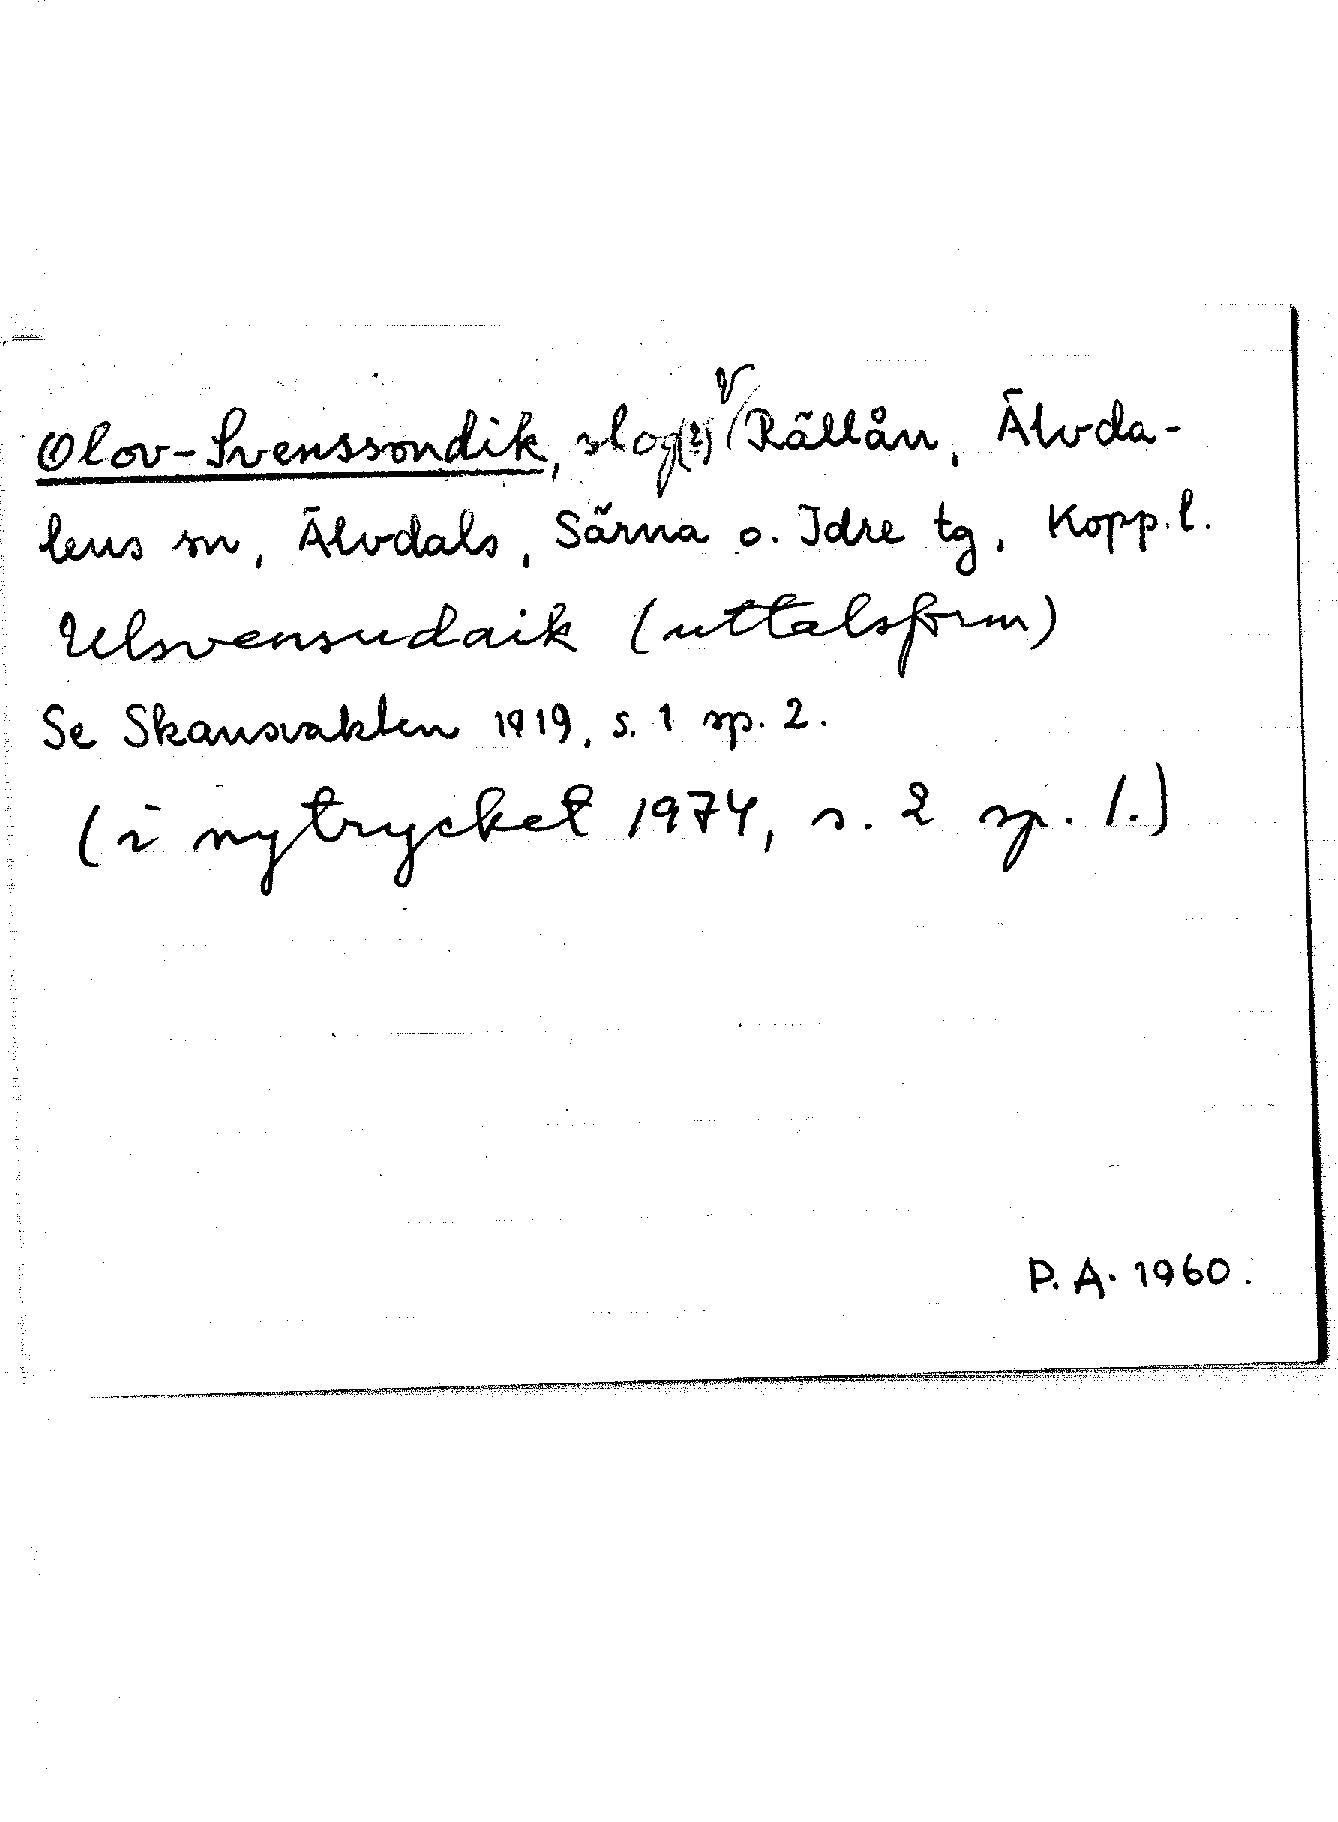 Olov-Svenssondik, slog(?) v/Rällån, Älvda-
lens sn, Älvdals, Särna o. Idre tg, Kopp.l.
Ulsvensudaik (uttalsform)
Se Skansvakten 1919, s. 1 sp. 2.
(i nytrycket 1974, s. 2 sp. 1.)
P. A. 1960.